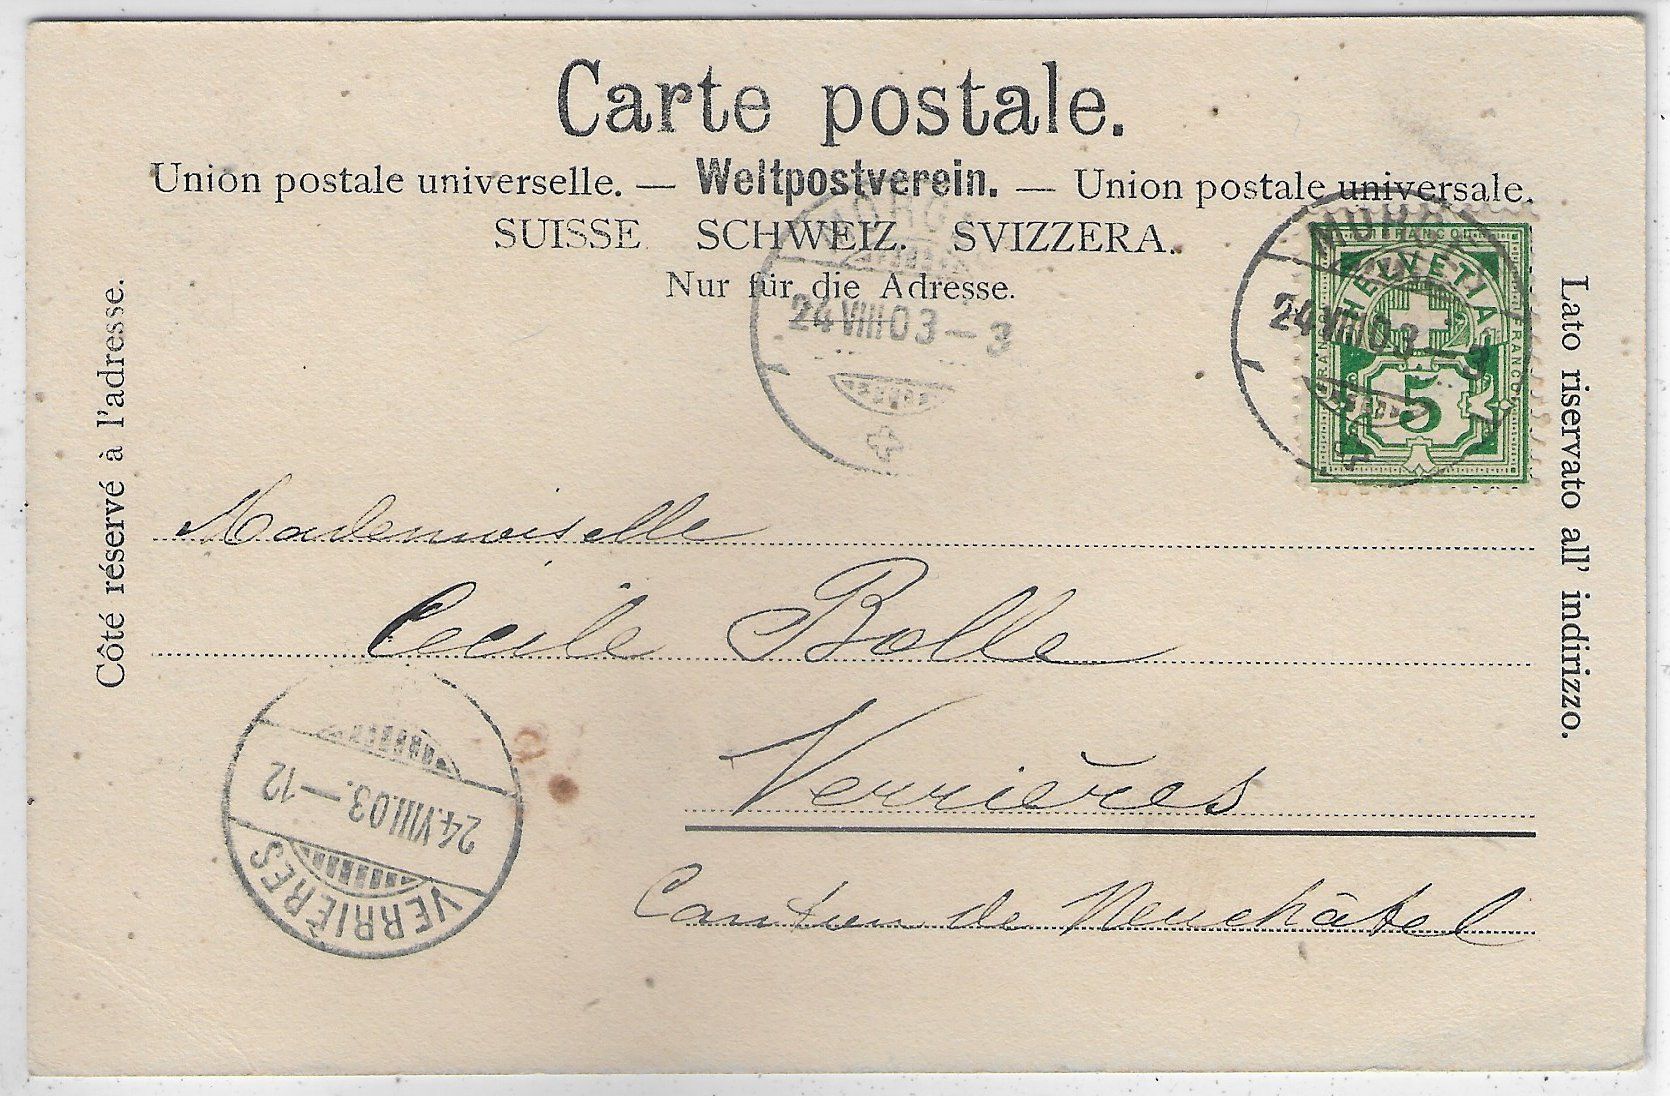 Carte postale.
Union postale universelle. — Weltpostverein. — Union postale universale.
SUISSE SCHWEIZ. SVIZZERA.
Nur für die Adresse.
Côté réservé à l'adresse.
Lato riservato all' indirizzo.
24 VIII 03 – 3
24 VIII 03 – 3
FRANCO
HELVETIA
FRANCO
FRANCO
5
Mademoiselle
Cécile Bolle
Verrières
Canton de Neuchâtel
24.VIII.03.–12
VERRIÈRES